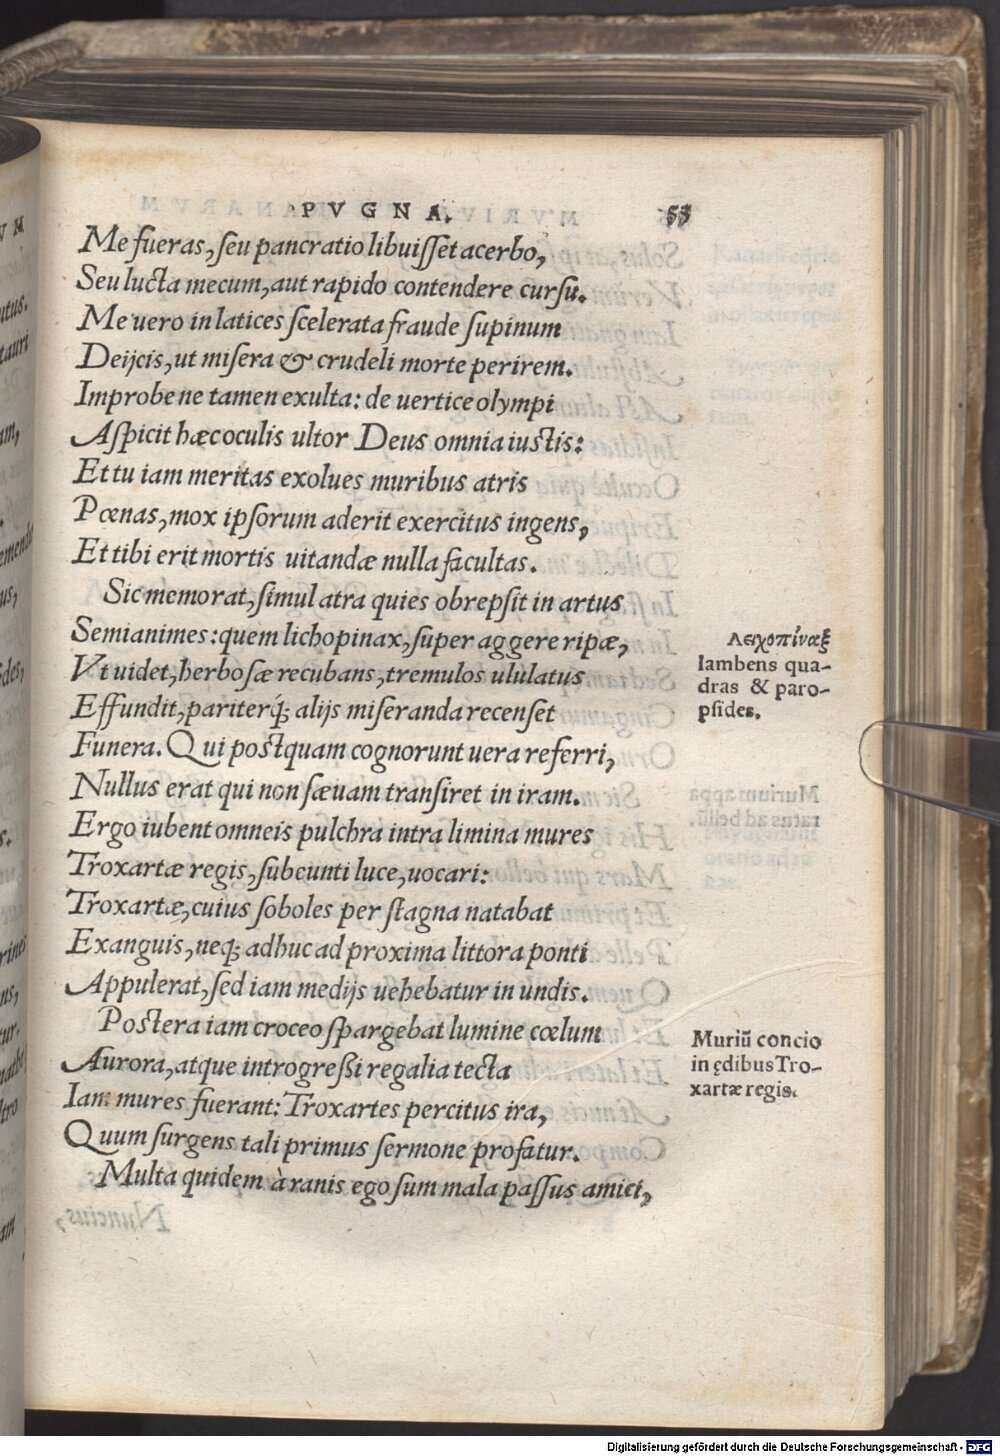 PVGNA. 53
Me fueras, seu pancratio libuisset acerbo,
Seu lucta mecum, aut rapido contendere cursu.
Me uero in latices scelerata fraude supinum
Deijcis, ut misera & crudeli morte perirem.
Improbe ne tamen exulta: de uertice olympi
Aspicit hæc oculis ultor Deus omnia iustis:
Et tu iam meritas exolues muribus atris
Pœnas, mox ipsorum aderit exercitus ingens,
Et tibi erit mortis uitandæ nulla facultas.
Sic memorat, simul atra quies obrepsit in artus
Semianimes: quem lichopinax, super aggere ripæ,
Vt uidet, herbosæ recubans, tremulos ululatus
Effundit, pariterq́; alijs miseranda recenset
Funera. Qui postquam cognorunt uera referri,
Nullus erat qui non sæuam transiret in iram.
Ergo iubent omneis pulchra intra limina mures
Troxartæ regis, subeunti luce, uocari:
Troxartæ, cuius soboles per stagna natabat
Exanguis, neq; adhuc ad proxima littora ponti
Appulerat, sed iam medijs uehebatur in undis.
Postera iam croceo spargebat lumine cœlum
Aurora, atque introgressi regalia tecta
Iam mures fuerant: Troxartes percitus ira,
Quum surgens tali primus sermone profatur.
Multa quidem à ranis ego sum mala passus amici,
Nuncius,
Λειχοπίναξ
lambens qua-
dras & paro-
psides.
Muriū concio
in ędibus Tro-
xartæ regis.
Digitalisierung gefördert durch die Deutsche Forschungsgemeinschaft - DFG